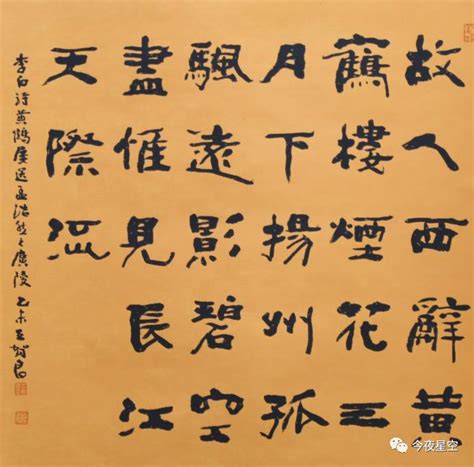 故人西辭黄
鶴樓煙花三
月下揚州孤
颿遠影碧空
盡惟見長江
天際流
李白诗黄鶴樓送孟浩然之廣陵 乙未王
今夜星空